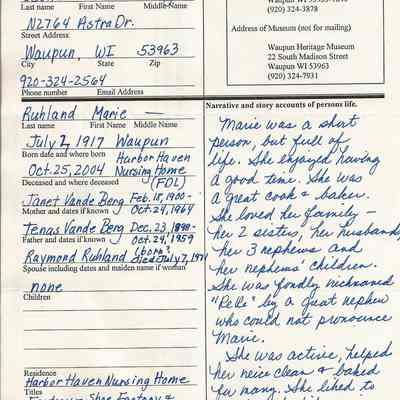 Last name First Name Middle Name
N2764 Astra Dr.
Street Address:
Waupun, WI 53963
City State Zip
920-324-2564
Phone number Email Address
(920) 324-3878
Address of Museum (not for mailing)
Waupun Heritage Museum
22 South Madison Street
Waupun WI 53963
(920) 324-7931
Ruhland Marie —
Last name First Name Middle Name
July 2, 1917 Waupun
Born date and where born Harbor Haven
Oct. 25, 2004 Nursing Home
Deceased and where deceased (FOL)
Janet Vande Berg Feb. 18, 1900-
Mother and dates if known Oct. 24, 1964
Tenas Vande Berg Dec. 23, 1890-
Father and dates if known Oct. 24, 1959
Raymond Ruhland (born?
died July 7,
Spouse including dates and maiden name if woman
none
Children
Residence
Harbor Haven Nursing Home
Titles
Shoe Factory &
Narrative and story accounts of persons life.
Marie was a short
person, but full of
life. She enjoyed having
a good time. She was
a great cook & baker.
She loved her family -
her 2 sisters, her husband,
her 3 nephews and
her nephews' children.
She was fondly nicknamed
"ReRe" by a great nephew
who could not pronounce
Marie.
She was active, helped
her neice clean & baked
for many. She liked to